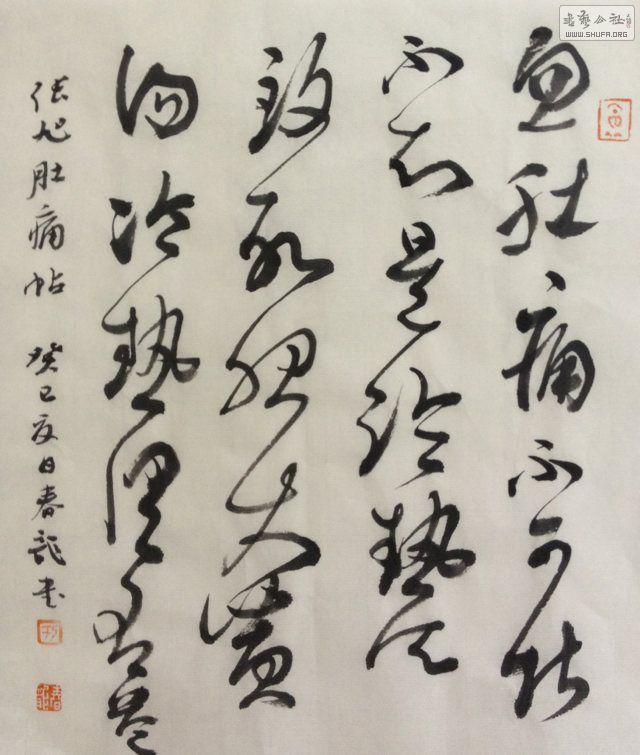 忽肚痛不可堪
不知是冷熱所
致欲服大黃
湯冷熱俱有益
張旭肚痛帖 癸巳夏日春龍書
書藝公社
WWW.SHUFA.ORG